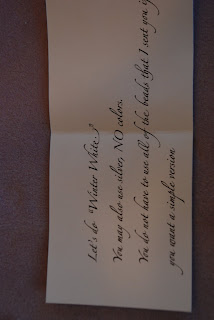 Let's do "Winter White"?
You may also use silver, NO colors.
You do not have to use all of the beads that I sent you if
you want a simple version.